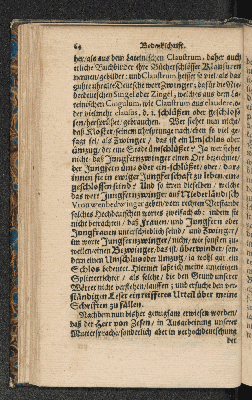 64 Bedenkschrift.
her/ als aus dem Lateinischen Claustrum, daher auch
etliche Buchbinder ihre Bücherschlösser Klausuren
nennen/ gebildet: und Claustrum heisset so viel/ als das
guhte uhralte Deutsche wort Zwinger; dafür die Nie-
derdeutschen Singel oder Zingel/ welches aus dem La-
teinischen Cingulum, wie Claustrum aus claudere, o-
der vielmehr clausus, d. i. schlüßen oder geschlos-
sen/ herrühret/ gebrauchen. Wer siehet nun nicht/
daß Kloster/ seinem uhrsprunge nach/ eben so viel ge-
sagt sei/ als Zwinger/ das ist ein Umschlos oder
umzug, der eine Stadt ümschlüßet? Ja wer siehet
nicht/ daß Jungfernzwinger einen Ort bezeichne/
der Jungfern üm- oder ein-schlüßet/ aber/ dar-
innen sie in ewiger Jungferschaft zu leben/ ein-
geschlossen seind? Und so wird dieselben/ welche
das wort Jungfernzwinger auf Niederländisch
Vrouwenbedwinger geben/ vom rechten Verstande
solches Hochdeutschen wortes zweifach ab: indem sie
nicht betrachten/ daß Frauen/ und Jungfern oder
Jungfrauen unterschiedlich seind/ und Zwinger/
im worte Jungfernzwinger/ nicht/ wie sonsten zu-
weilen/ einen Bezwinger/ das ist/ überwinder/ son-
dern einen Umschlus oder Umzug/ ja wohl gar ein
Schlos bedeutet. Hiermit laß ich meine unzeitigen
Splitterrichter/ als solche/ die den Grund unserer
Wörter nicht verstehen/ lauffen; und ersuche den ver-
ständigen Leser ein reifferes Urteil über meine
Schriften zu fällen.
Nachdem nun bisher genugsam erwiesen worden/
daß der Herr von Zesen/ in Ausarbeitung unserer
Muttersprache/ sonderlich aber in verhochdeutschung
der